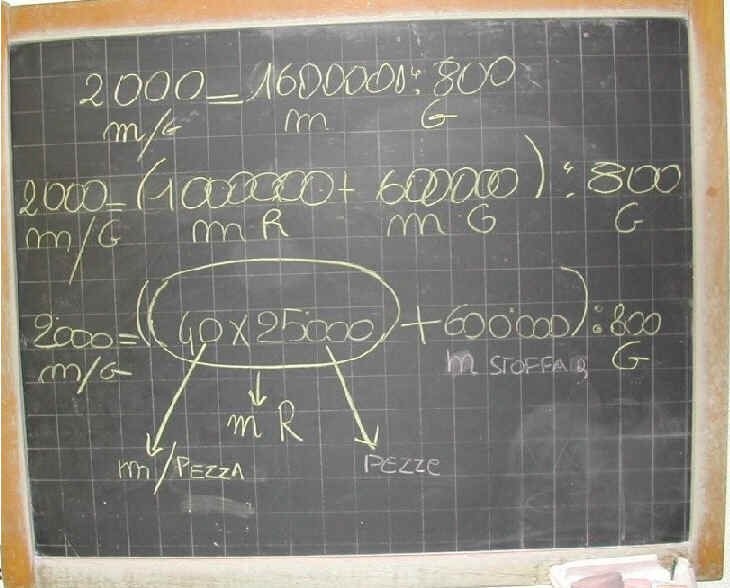 2000=1600000:800
m/G m G
2000=(1000000+600000):800
m/G m R m G G
2000=((40×25000)+600000):800
m/G m STOFFA G
m R
m/PEZZA PEZZE